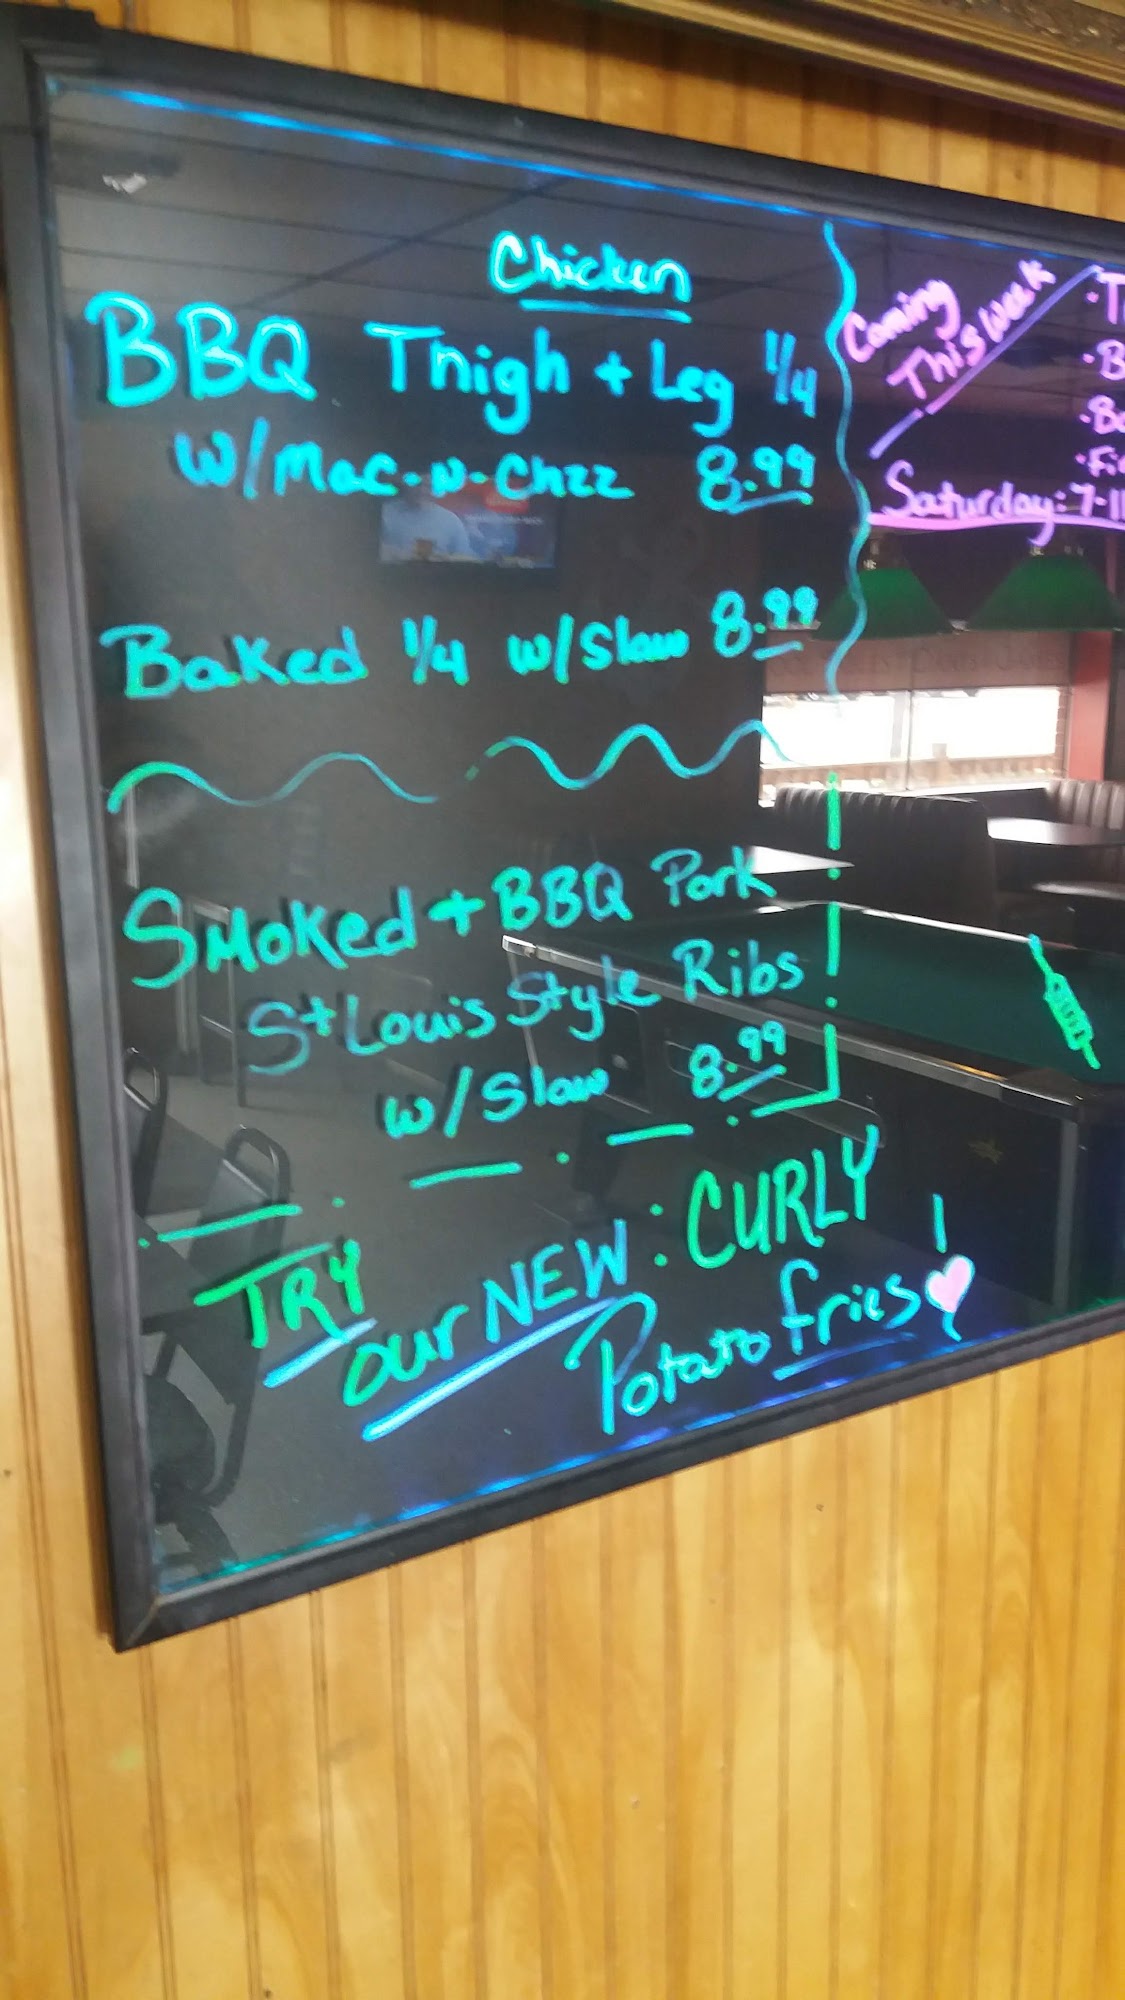 Chicken
BBQ Thigh + Leg 1/4
w/Mac-n-Chzz 8.99
Baked 1/4 w/Slaw 8.99
Smoked + BBQ Pork
St Louis Style Ribs
w/Slaw 8.99
TRY
our NEW: CURLY
Potato fries!
Coming
This Week
Saturday: 7-11